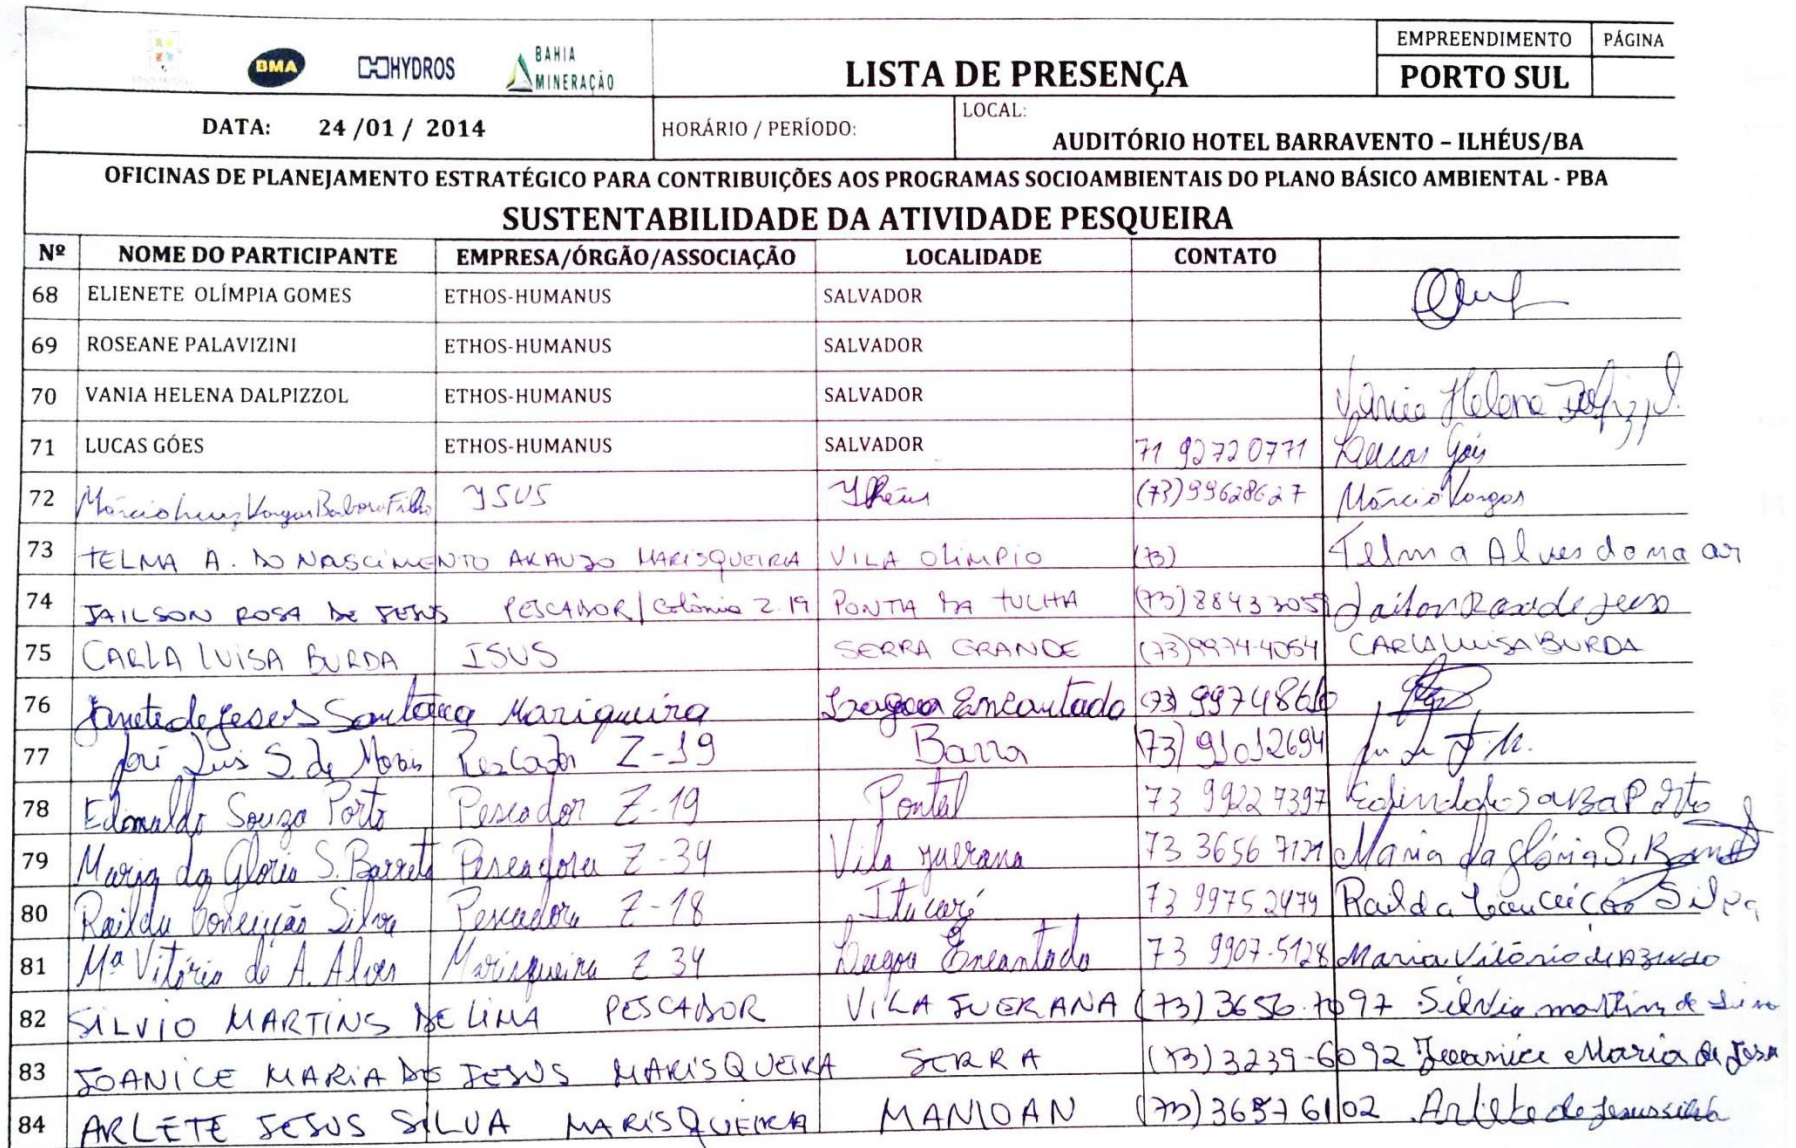 BMA HYDROS BAHIA MINERAÇÃO
LISTA DE PRESENÇA
EMPREENDIMENTO PÁGINA
PORTO SUL
DATA: 24 /01 / 2014 HORÁRIO / PERÍODO: LOCAL:
AUDITÓRIO HOTEL BARRAVENTO – ILHÉUS/BA
OFICINAS DE PLANEJAMENTO ESTRATÉGICO PARA CONTRIBUIÇÕES AOS PROGRAMAS SOCIOAMBIENTAIS DO PLANO BÁSICO AMBIENTAL - PBA
SUSTENTABILIDADE DA ATIVIDADE PESQUEIRA
Nº NOME DO PARTICIPANTE EMPRESA/ÓRGÃO/ASSOCIAÇÃO LOCALIDADE CONTATO
68 ELIENETE OLÍMPIA GOMES ETHOS-HUMANUS SALVADOR
69 ROSEANE PALAVIZINI ETHOS-HUMANUS SALVADOR
70 VANIA HELENA DALPIZZOL ETHOS-HUMANUS SALVADOR Vânia Helena
71 LUCAS GÓES ETHOS-HUMANUS SALVADOR 71 92720771 Lucas Góis
72 Márcio Luiz Vargas Barbosa Filho ISUS Ilhéus (73)99628627 Márcio Vargas
73 TELMA A. DO NASCIMENTO ARAUJO MARISQUEIRA VILA OLIMPIO (73) Telma Alves do na ar
74 JAILSON ROSA DE JESUS PESCADOR/Colônia Z.19 PONTA DA TULHA (73)88433059 Jailson Rosa de Jesus
75 CARLA LUISA BURDA ISUS SERRA GRANDE (73)9974-4054 CARLA LUISA BURDA
76 Janete de Jesus Santana Mariqueira Lagoa Encantada (73)
77 José Luis S. de Morais Pescador Z-19 Barra (73) 91012694
78 Edonaldo Souza Porto Pescador Z-19 Pontal 73 9922 7397
79 Maria da Gloria S. Barreto Pescadora Z-34 Vila Juerana 73 3656 7121 Maria da Glória S. Barreto
80 Railda Conceição Silva Pescadora Z-18 Itacaré 73 9975 2479 Railda Conceição Silva
81 Mª Vitória de A. Alves Marisqueira Z 34 Lagoa Encantada 73 9907-5128 Maria Vitória de Azevedo
82 SILVIO MARTINS DE LIMA PESCADOR VILA JUERANA (73) 3656-7097 Silvio martins de Lima
83 JOANICE MARIA DE JESUS MARISQUEIRA SERRA (73)3239-6092 Joanice Maria de Jesus
84 ARLETE JESUS SILVA MARISQUEIRA MANIOAN (73)36576102 Arlete de Jesus silva